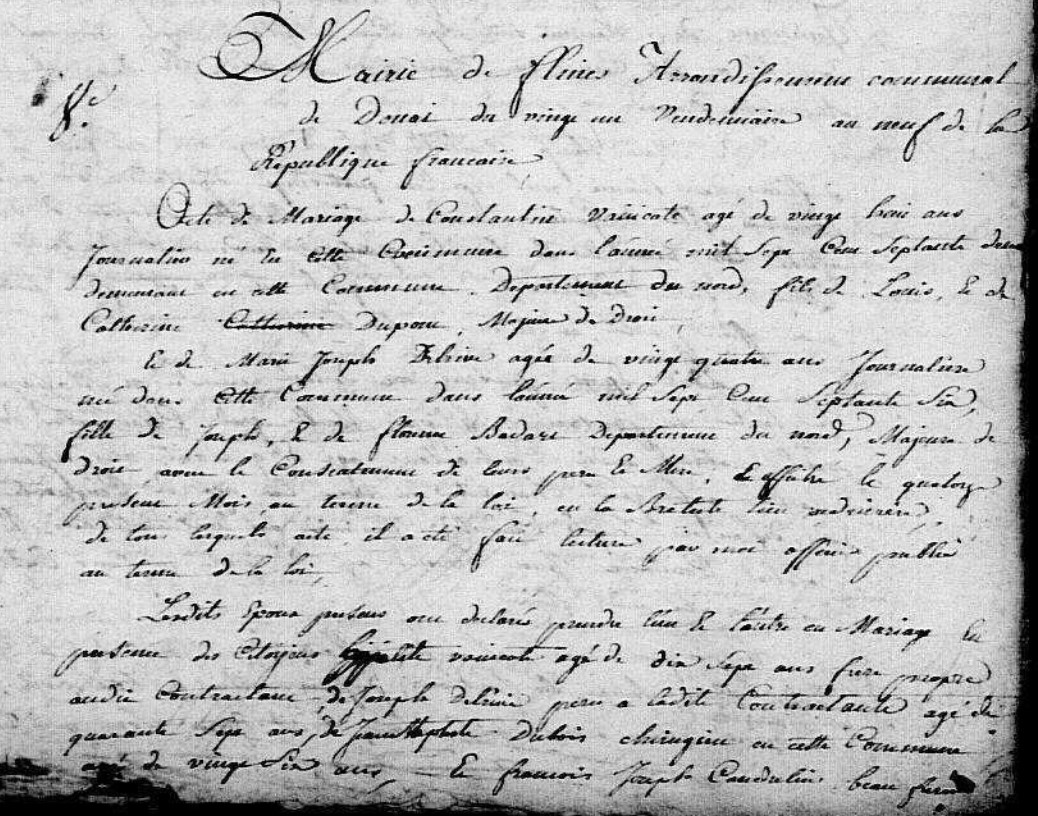 Mairie de flines Arrondissement communal
8e
de Douai du vingt un Vendemiaire an neuf de la
République francaise,
Acte de Mariage de Constantin Vrincate agé de vingt huit ans
Journalier né en cette Commune dans l'année mil Sept Cent Septante deux
demeurant en cette Commune Departement du nord, fils de Louis, et de
Catherine Catherine Dupont, Majeur de Droit,
Et de Marie Joseph Delrive agée de vingt quatre ans Journaliere
née dans cette Commune dans l'année mil Sept Cent Septante Six,
fille de Joseph, et de florence Departement du nord, Majeure de
droit avec le Consentement de leurs pere et Mere, et affichée le quatorze
present Mois au terme de la loi, en la
de tous lesquels acte, il a été fait lecture par moi officier public
au terme de la loi,
Lesdits Epoux presens ont declarés prendre l'un et l'autre en Mariage En
presence des Citoyens hyppolite vrincate agé de dix Sept ans frere propre
audit Contractant, de Joseph Delrive pere a ladite Contractante agé de
quarante Sept ans, de Jean Baptiste Dubois chirugien en cette Commune
agé de vingt Six ans, Et francois Joseph beau frere